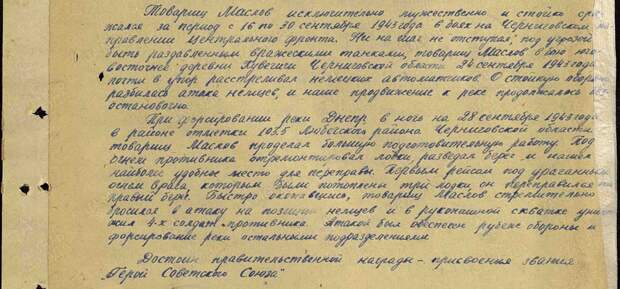 Товарищ Маслов исключительно мужественно и стойко сра-
жался за период с 16 по 30 сентября 1943 года в боях на Черниговском на
правлении Центрального фронта. Ни на шаг не отступая, под угрозой
быть раздавленным вражескими танками, товарищ Маслов в бою юго-
восточнее деревни Чернигов­ской области 24 сентября 1943 года
почти в упор расстреливал немецких автоматчиков. О стойкую оборону
разбилась атака немцев, и наше продвижение к реке продолжалось без
остановочно.
При форсировании реки Днепр в ночь на 28 сентября 1943 года
в районе отметки 102.5 Любечского района Черниговской области
товарищ Маслов проделал большую подготовительную работу. Под
огнем противника отремонтировал лодки, разведал берег и нашел
наиболее удобные место для переправы. Первым рейсом под ураганным
огнем врага, которым были потоплены три лодки, он переправился на
правый берег. Быстро окопавшись, товарищ Маслов стремительно
бросился в атаку на позиции немцев и в рукопашной схватке унич
жил 4-х солдат противника. Атакой был обеспечен рубеж обороны и
форсирование реки остальными подразделениями.
Достоин правительственной награды - присвоения звания
"Герой Советского Союза"